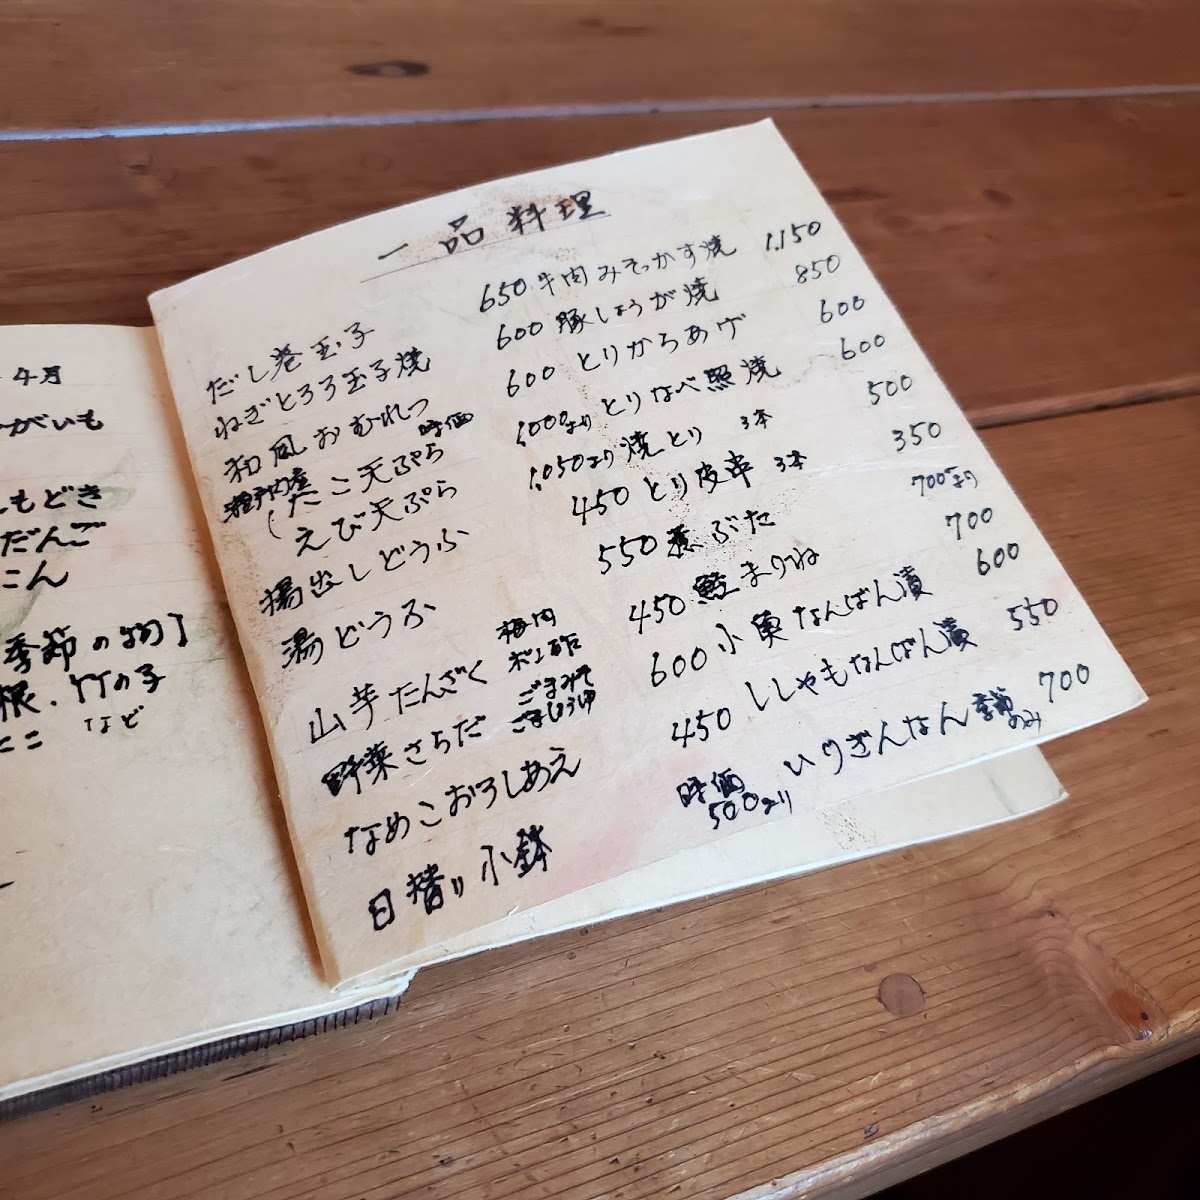 4月
がいも
もどき
だんご
こん
季節の物
根.竹の子
など
一品料理
だし巻玉子 650
ねぎとろろ玉子焼 600
和風おむれつ 600
瀬戸内産 時価
たこ天ぷら 1,000より
えび天ぷら 1,050より
揚出しどうふ 450
湯どうふ 550
山芋たんざく 梅肉 ポン酢 450
野菜さらだ ごまみそ ごましょうゆ 600
なめこおろしあえ 450
日替り小鉢 時価 500より
牛肉みそつかす焼 1,150
豚しょうが焼 850
とりからあげ 600
とりなべ照焼 600
焼とり 3本 500
とり皮串 3本 350
煮ぶた 700より
鮭まりね 700
小魚なんばん漬 600
ししゃもなんばん漬 550
いりぎんなん 季節のみ 700